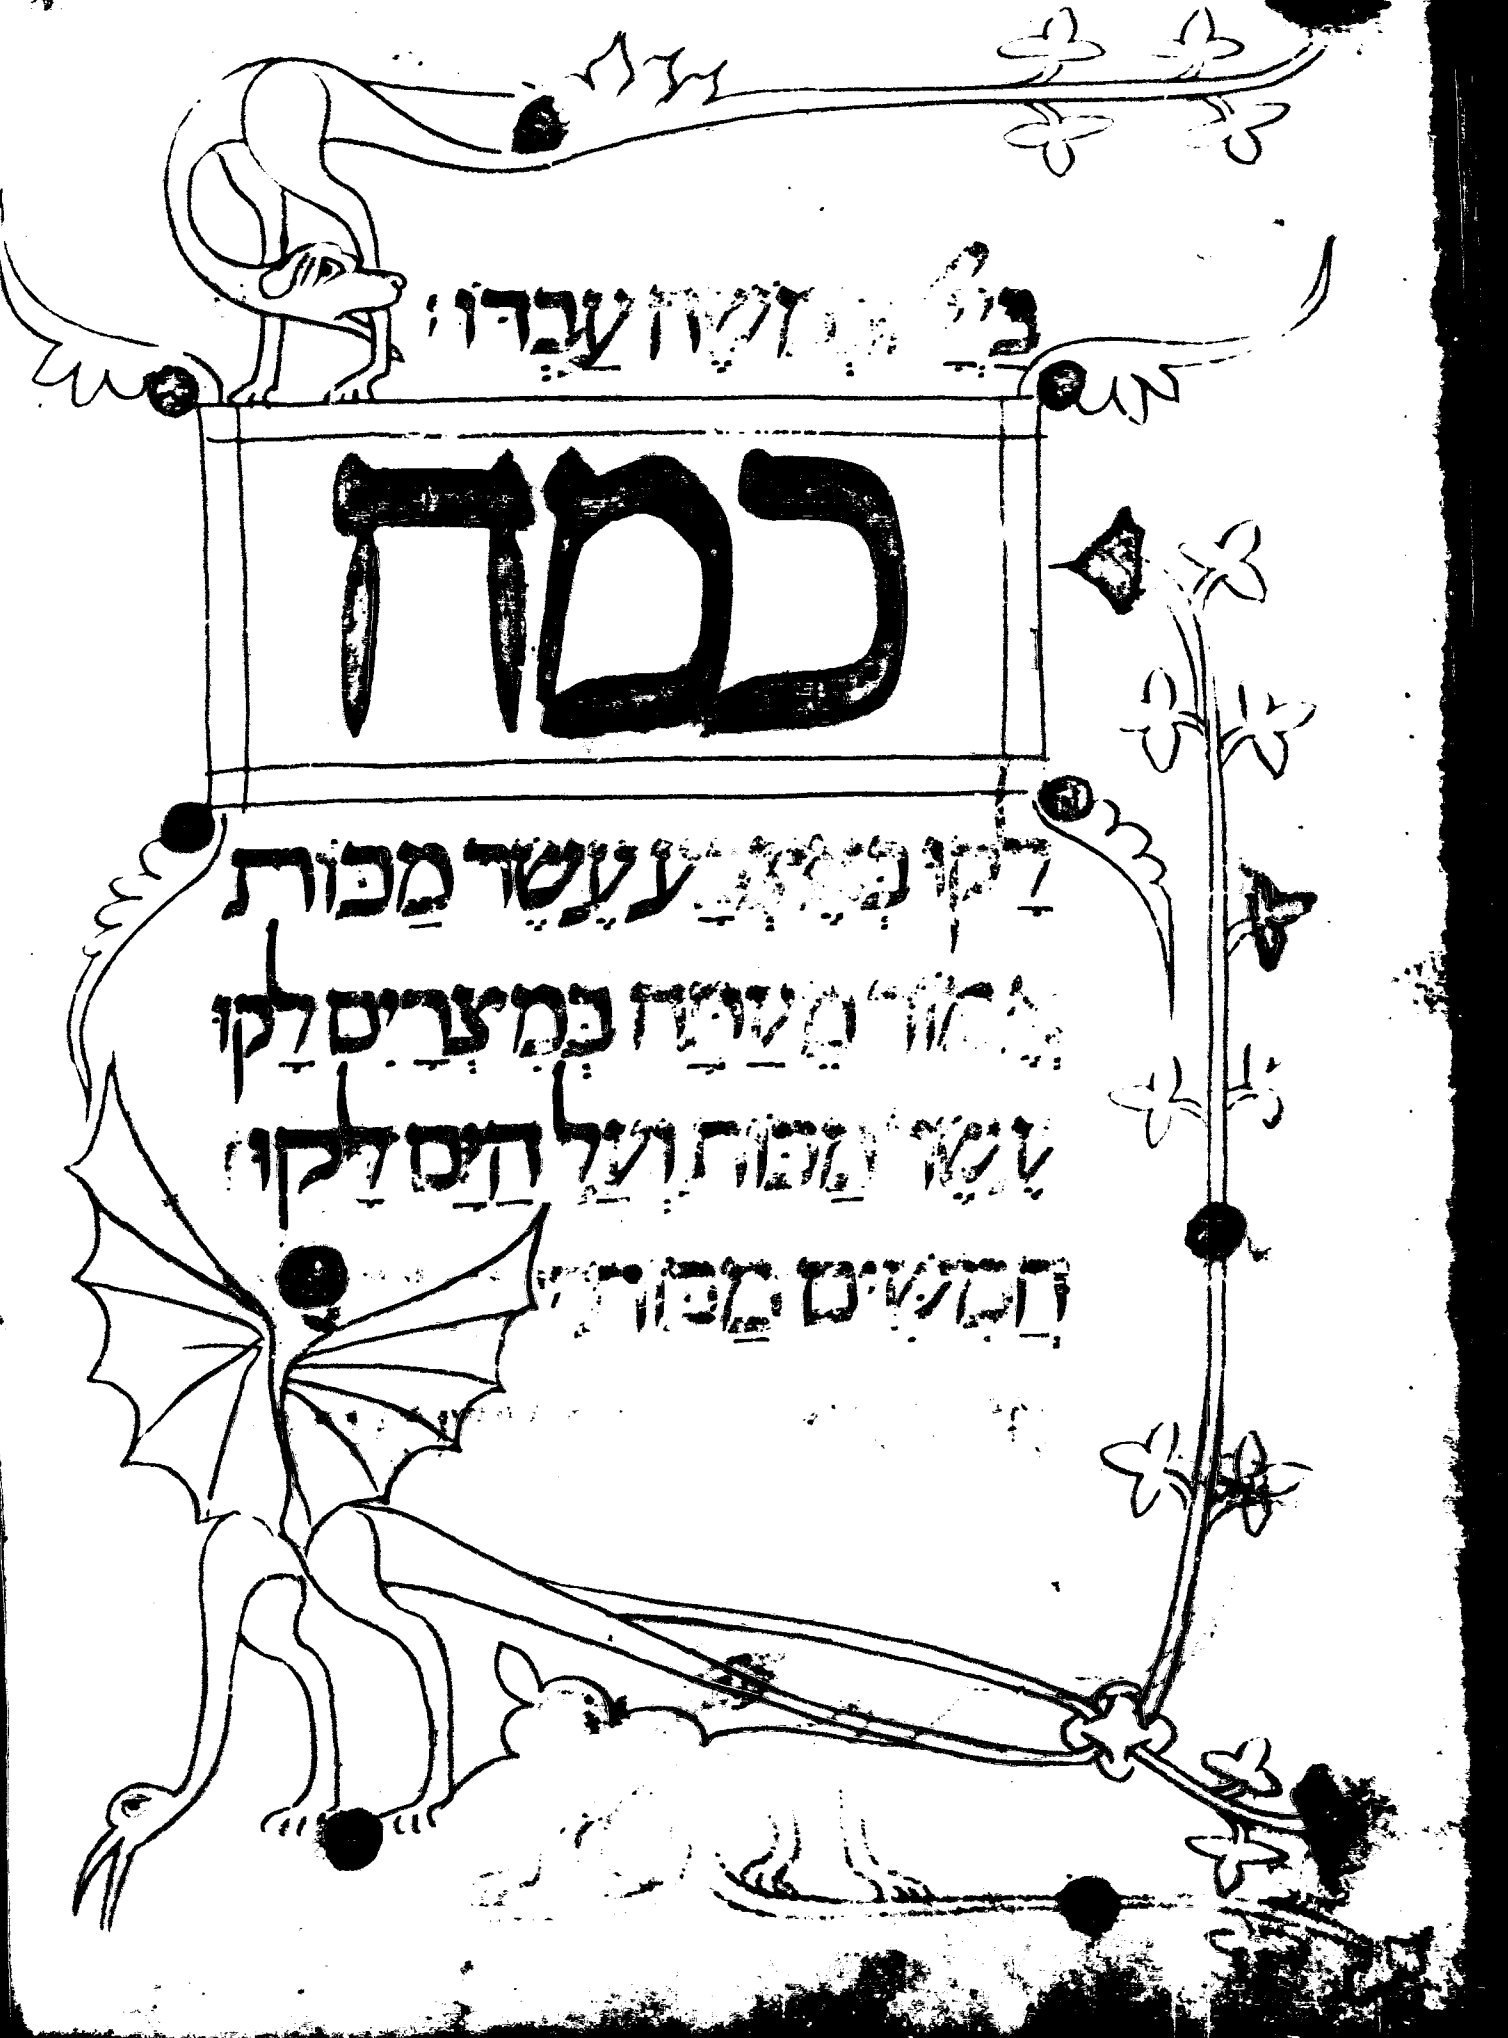 בַּיְיָ וּבְמֹשֶׁה עַבְדּוֹ׃
כמה
לַקוּ בְּאֶצְבַּע עֶשֶׂר מַכּוֹת
אֱמוֹר מֵעַתַּה בְּמִצְרַיִם לַקוּ
עֶשֶׂר מַכּוֹת וְעַל הַיַם לַקוּ
חֲמִשִׁים מַכּוֹת